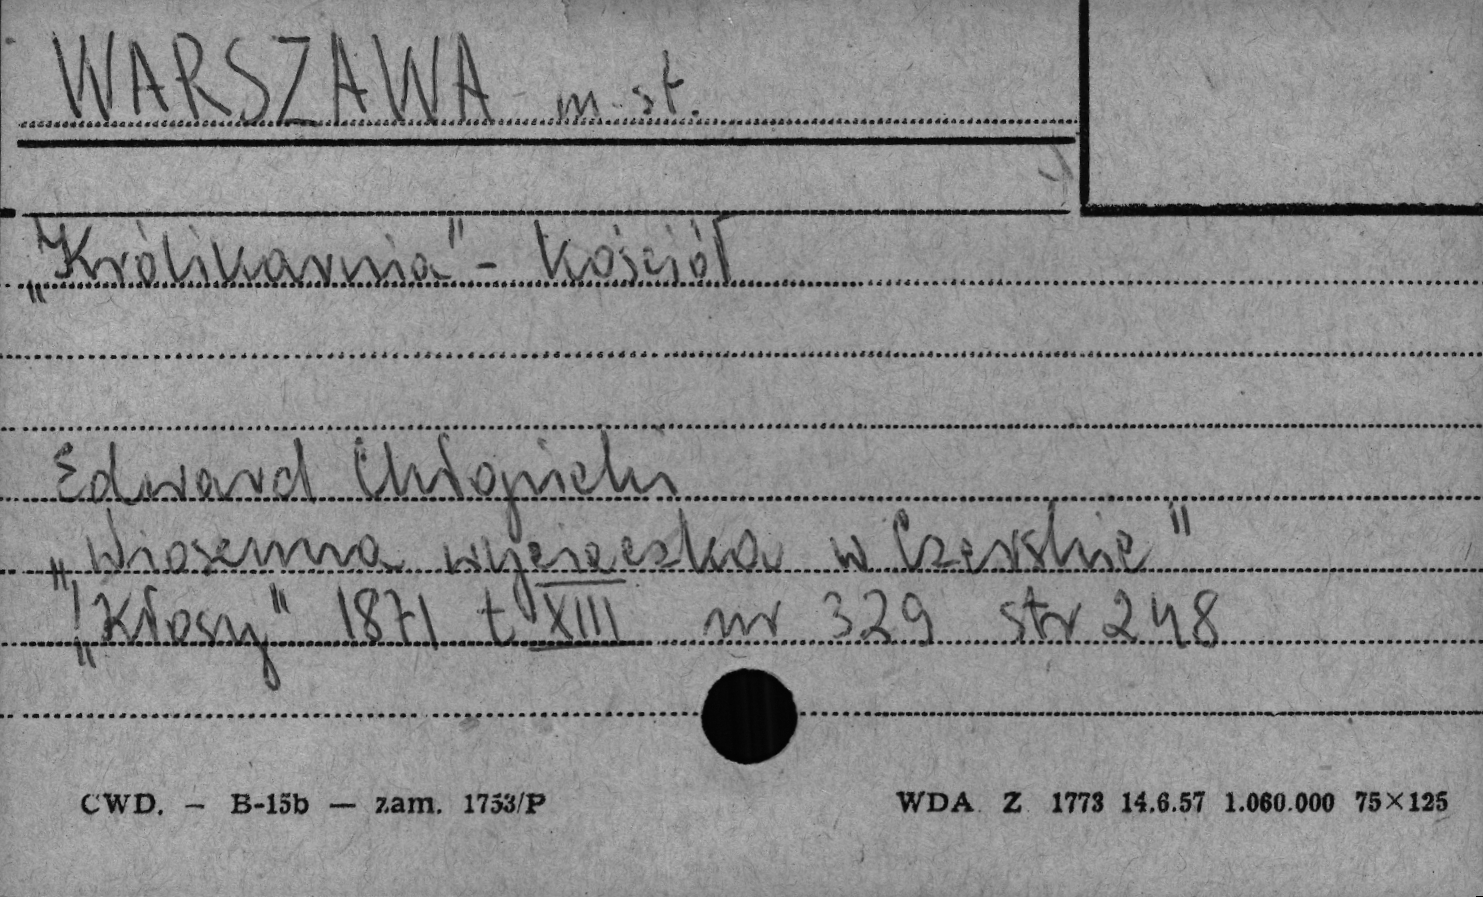 WARSZAWA m. st.
„Królikarnia" - kościół
Edward Chłopicki
„Wiosenna wycieczka w Czerskie"
„Kłosy" 1871 t XIII nr 329 str 248
CWD. — B-15b — zam. 1753/P
WDA Z 1773 14.6.57 1.060.000 75×125